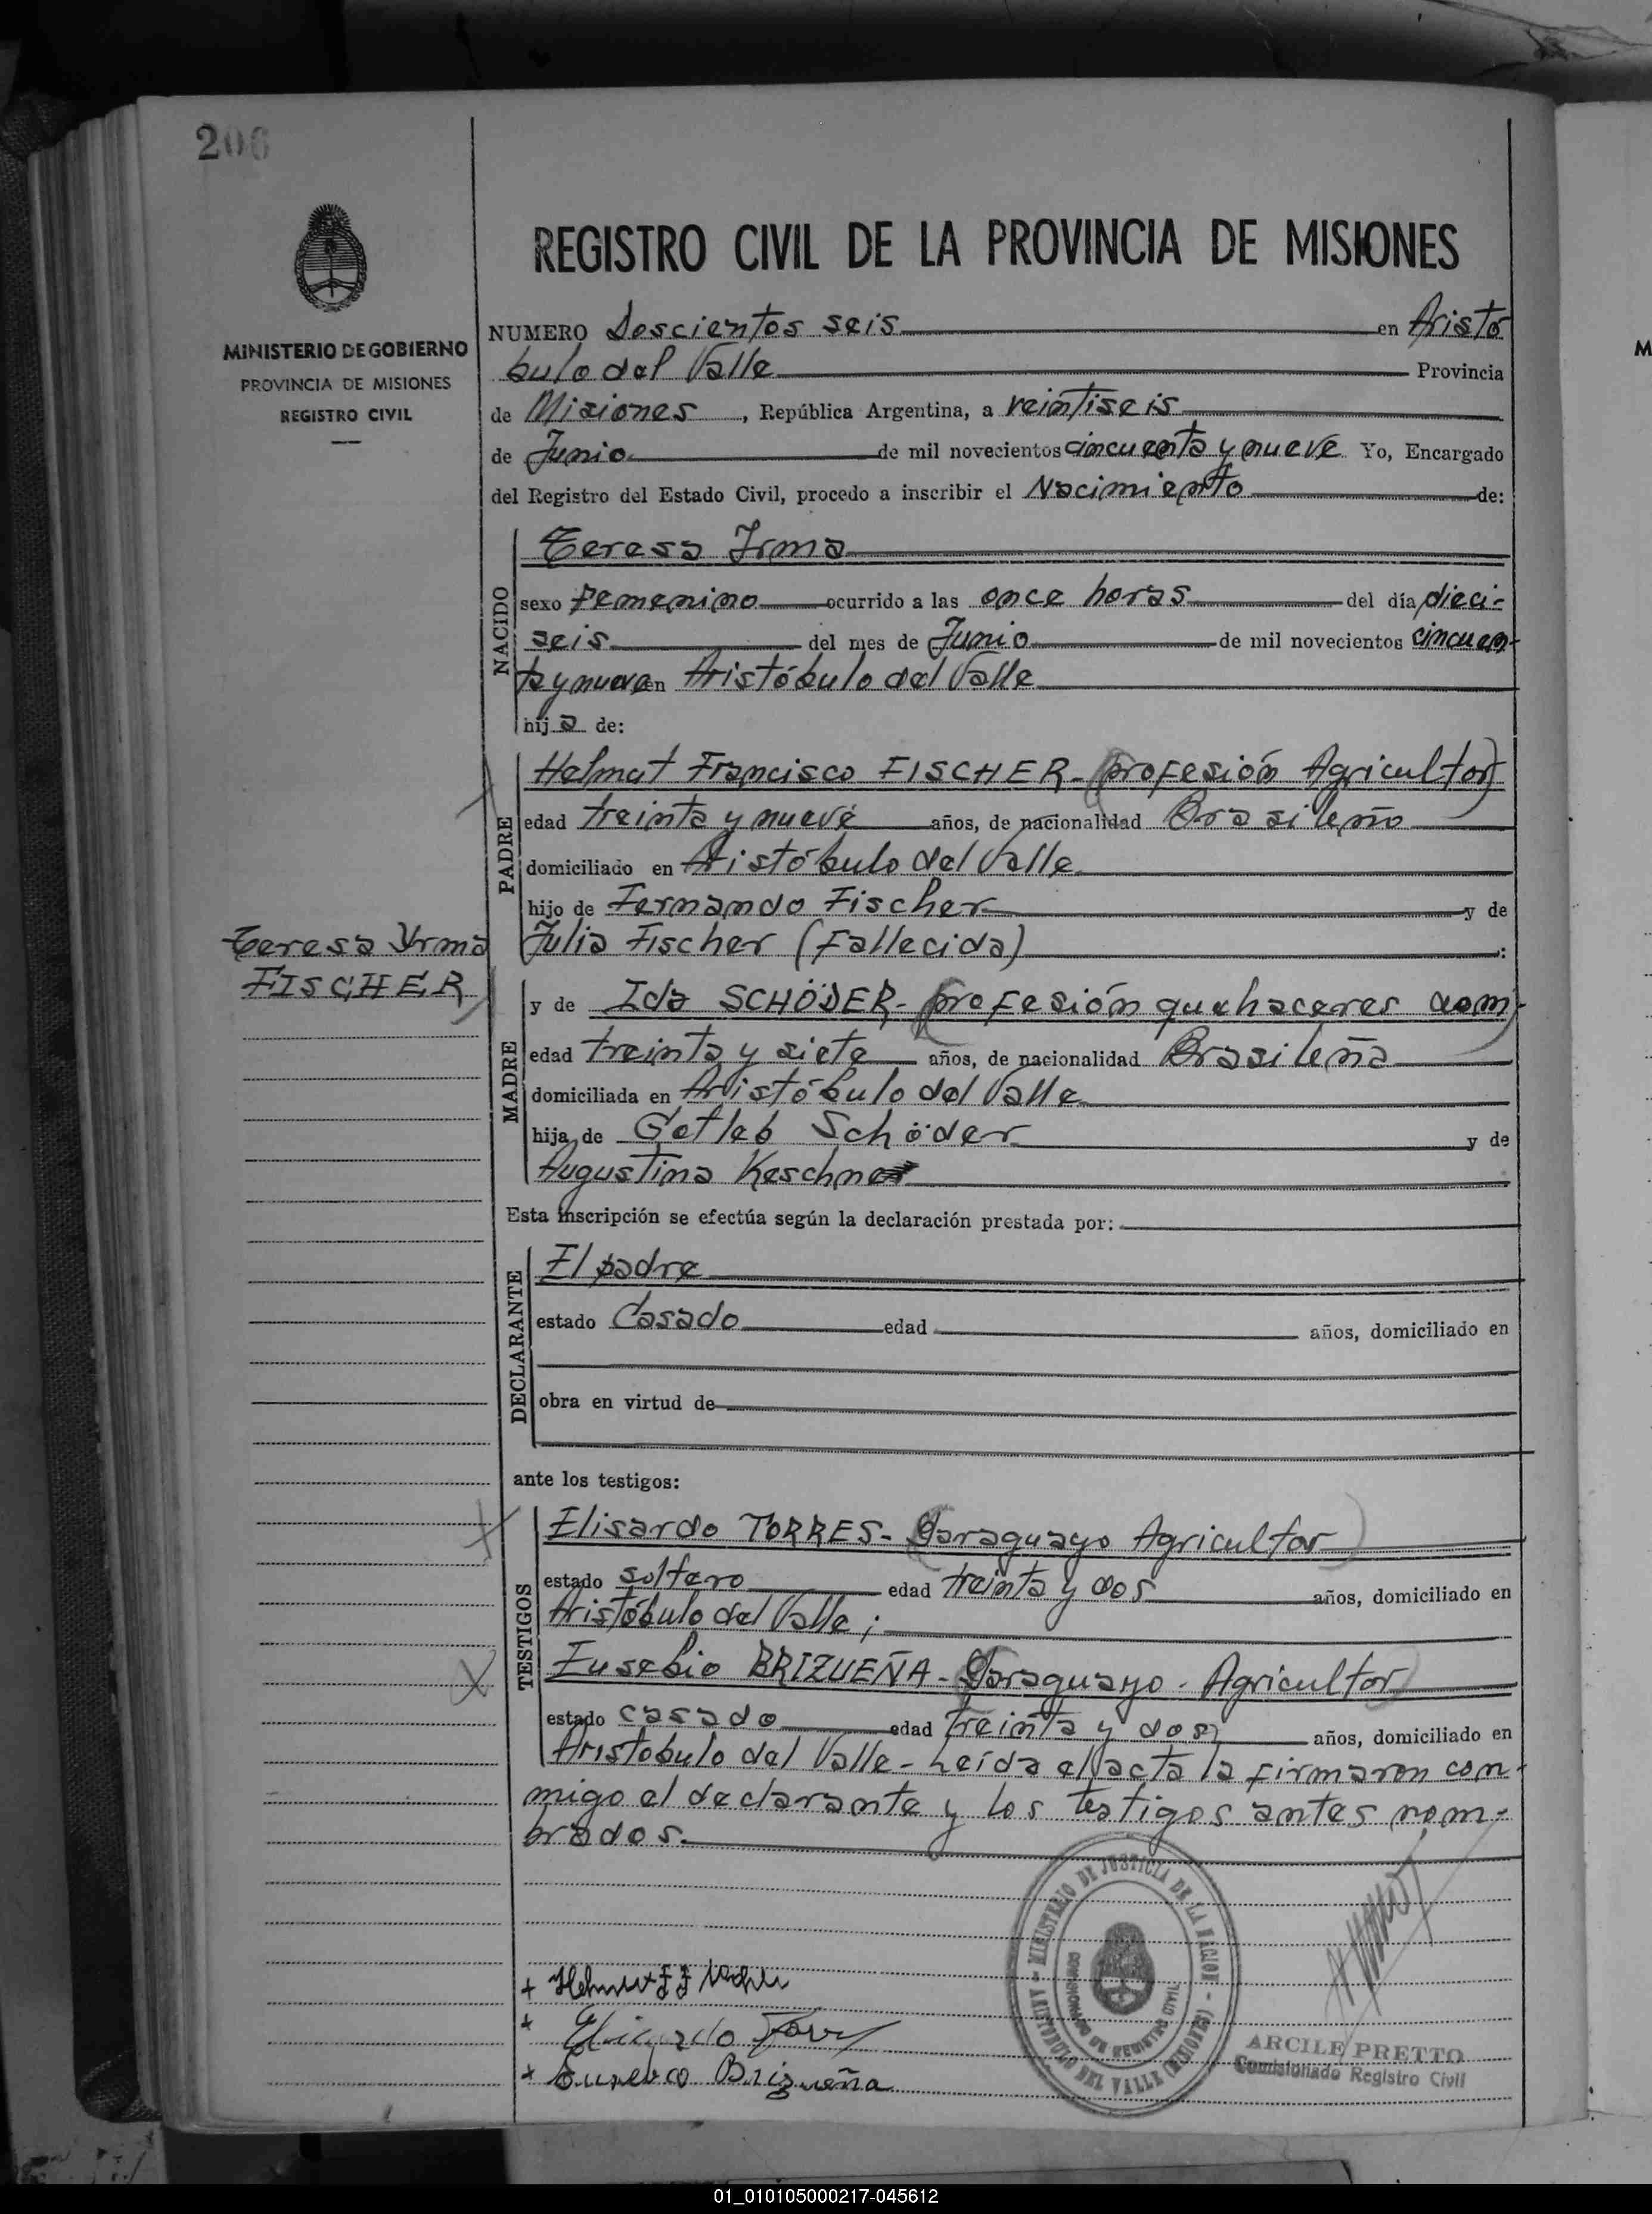 206
MINISTERIO DE GOBIERNO
PROVINCIA DE MISIONES
REGISTRO CIVIL
REGISTRO CIVIL DE LA PROVINCIA DE MISIONES
NUMERO Doscientos seis en Aristó
bulo del Valle Provincia
de Misiones, República Argentina, a veintiseis
de Junio de mil novecientos cincuenta y nueve Yo, Encargado
del Registro del Estado Civil, procedo a inscribir el Nacimiento de:
NACIDO
Teresa Irma
sexo Femenino ocurrido a las once horas del día dieci-
seis del mes de Junio de mil novecientos cincuen-
ta y nueve en Aristóbulo del Valle
hija de:
PADRE
Helmut Francisco FISCHER- (profesión Agricultor)
edad treinta y nueve años, de nacionalidad Brasileño
domiciliado en Aristóbulo del Valle
hijo de Fernando Fischer y de
Julia Fischer (Fallecida) :
Teresa Yrma
FISCHER
MADRE
y de Ida SCHÖDER- (profesión quehaceres dom)
edad treinta y siete años, de nacionalidad Brasileña
domiciliada en Aristóbulo del Valle
hija de Gotleb Schöder y de
Augustina Keschner
Esta inscripción se efectúa según la declaración prestada por:
DECLARANTE
El padre
estado Casado edad años, domiciliado en
obra en virtud de
ante los testigos:
TESTIGOS
Elisardo TORRES- (Paraguayo Agricultor)
estado soltero edad treinta y dos años, domiciliado en
Aristóbulo del Valle;
Eusebio BRIZUEÑA- (Paraguayo - Agricultor)
estado casado edad treinta y dos años, domiciliado en
Aristobulo del Valle- Leída el acta la firmaron con-
migo el declarante y los testigos antes nom-
brados.
MINISTERIO DE JUSTICIA DE LA NACION - ARISTOBULO DEL VALLE (MISIONES)
COMISIONADO DE REGISTRO CIVIL
+ Helmut F
+ Elisardo Torres
+ Eusebio Brizueña
ARCILE PRETTO
Comisionado Registro Civil
M
01_010105000217-045612